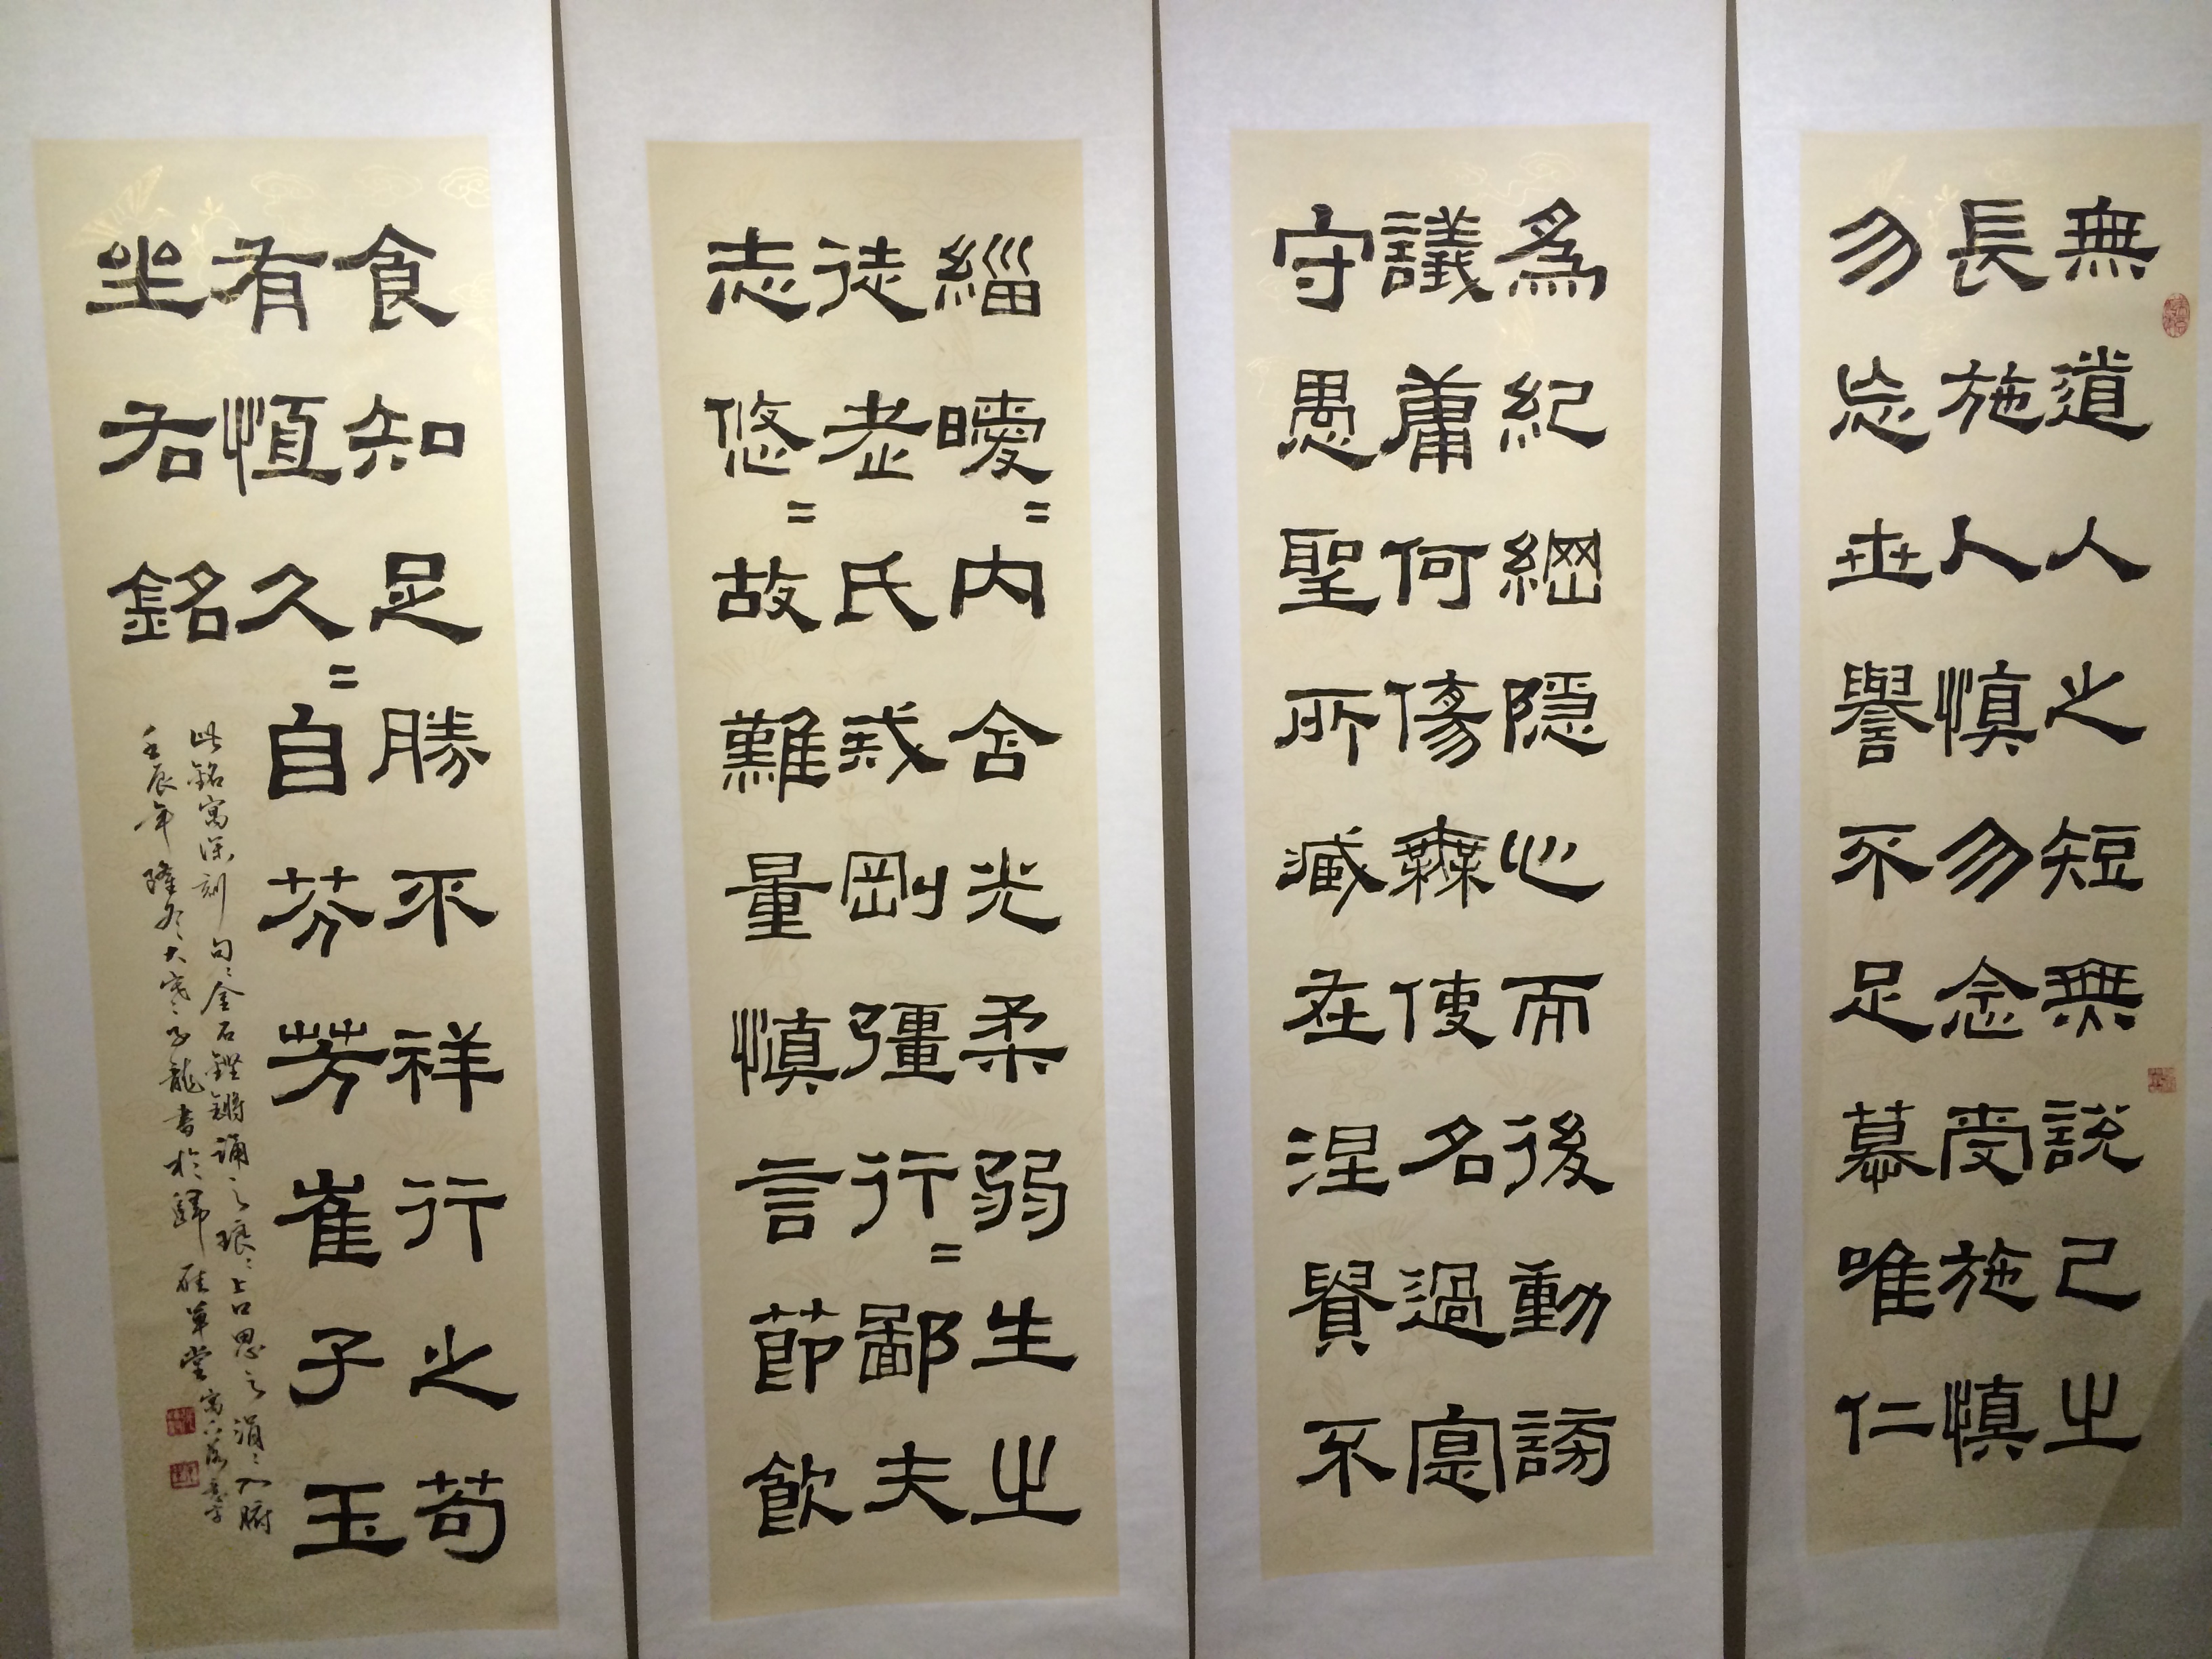 無道人之短無說己之
長施人慎勿念受施慎
勿忘世譽不足慕唯仁
為紀綱隱心而後動謗
議庸何傷無使名過實
守愚聖所臧在涅貴不
緇曖〻內含光柔弱生之
徒老氏戒剛彊行〻鄙夫
志悠〻故難量慎言節飲
食知足勝不祥行之苟
有恆久〻自芬芳崔子玉
坐右銘
此銘寓深刻句〻金石鏗鏘誦之琅〻上口思之涓〻入腑
壬辰年隆冬大寒子龍書於歸硅草堂